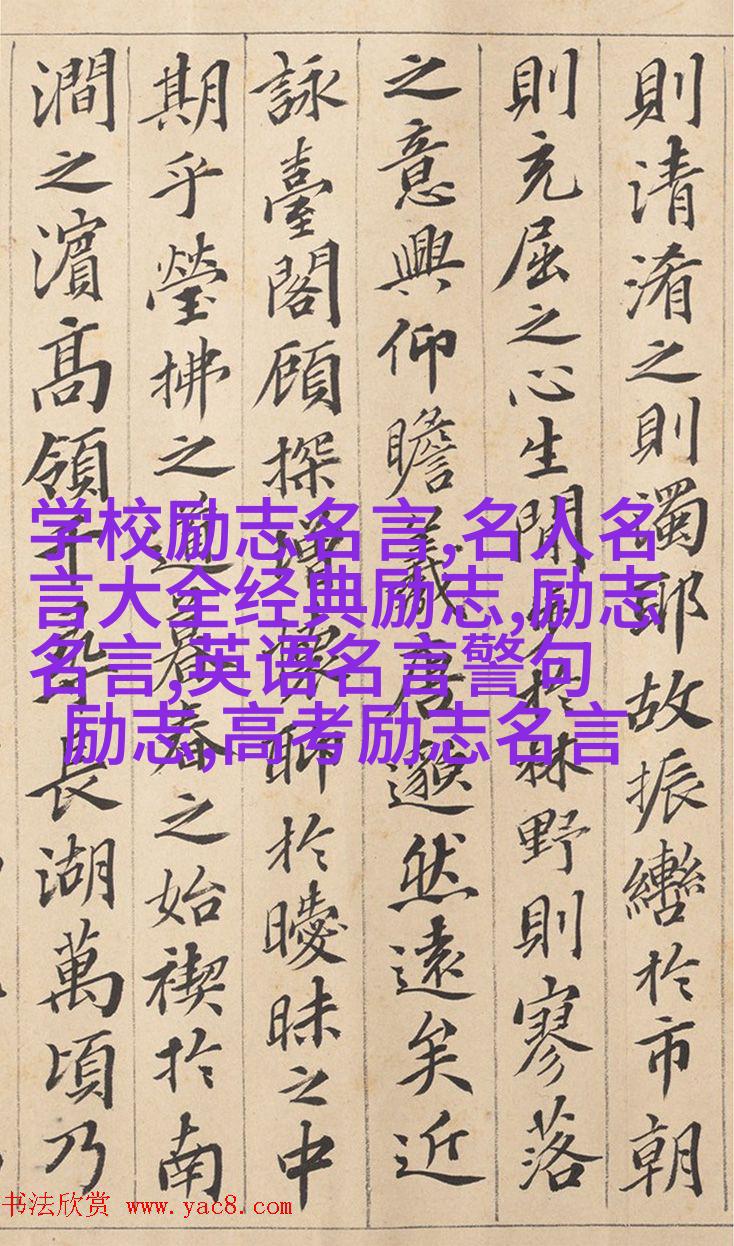 則清淆之則濁耶故振轡於市朝
則充屈之心生閒步於林野則寥落
之意興仰瞻羲唐邈然遠矣近
詠臺閣顧探增懷聊於曖昧之中
期乎瑩拂之道暮春之始禊於南
澗之濱高領千尋長湖萬頃乃
学校励志名言,名人名
言大全经典励志,励志
名言,英语名言警句
励志,高考励志名言
书法欣赏 www.yac8.com